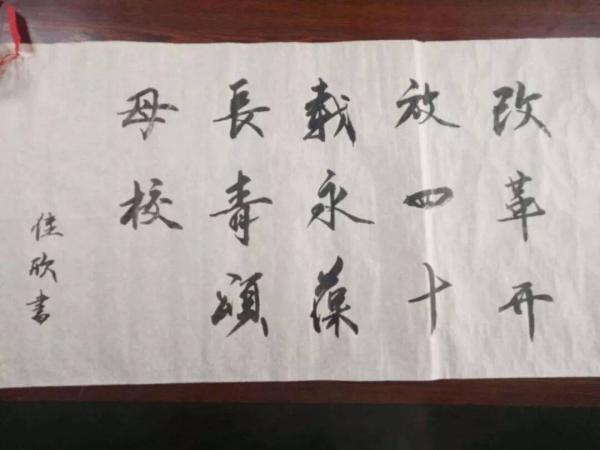 改革开
放四十
載永葆
長青頌
母校
佳欣書